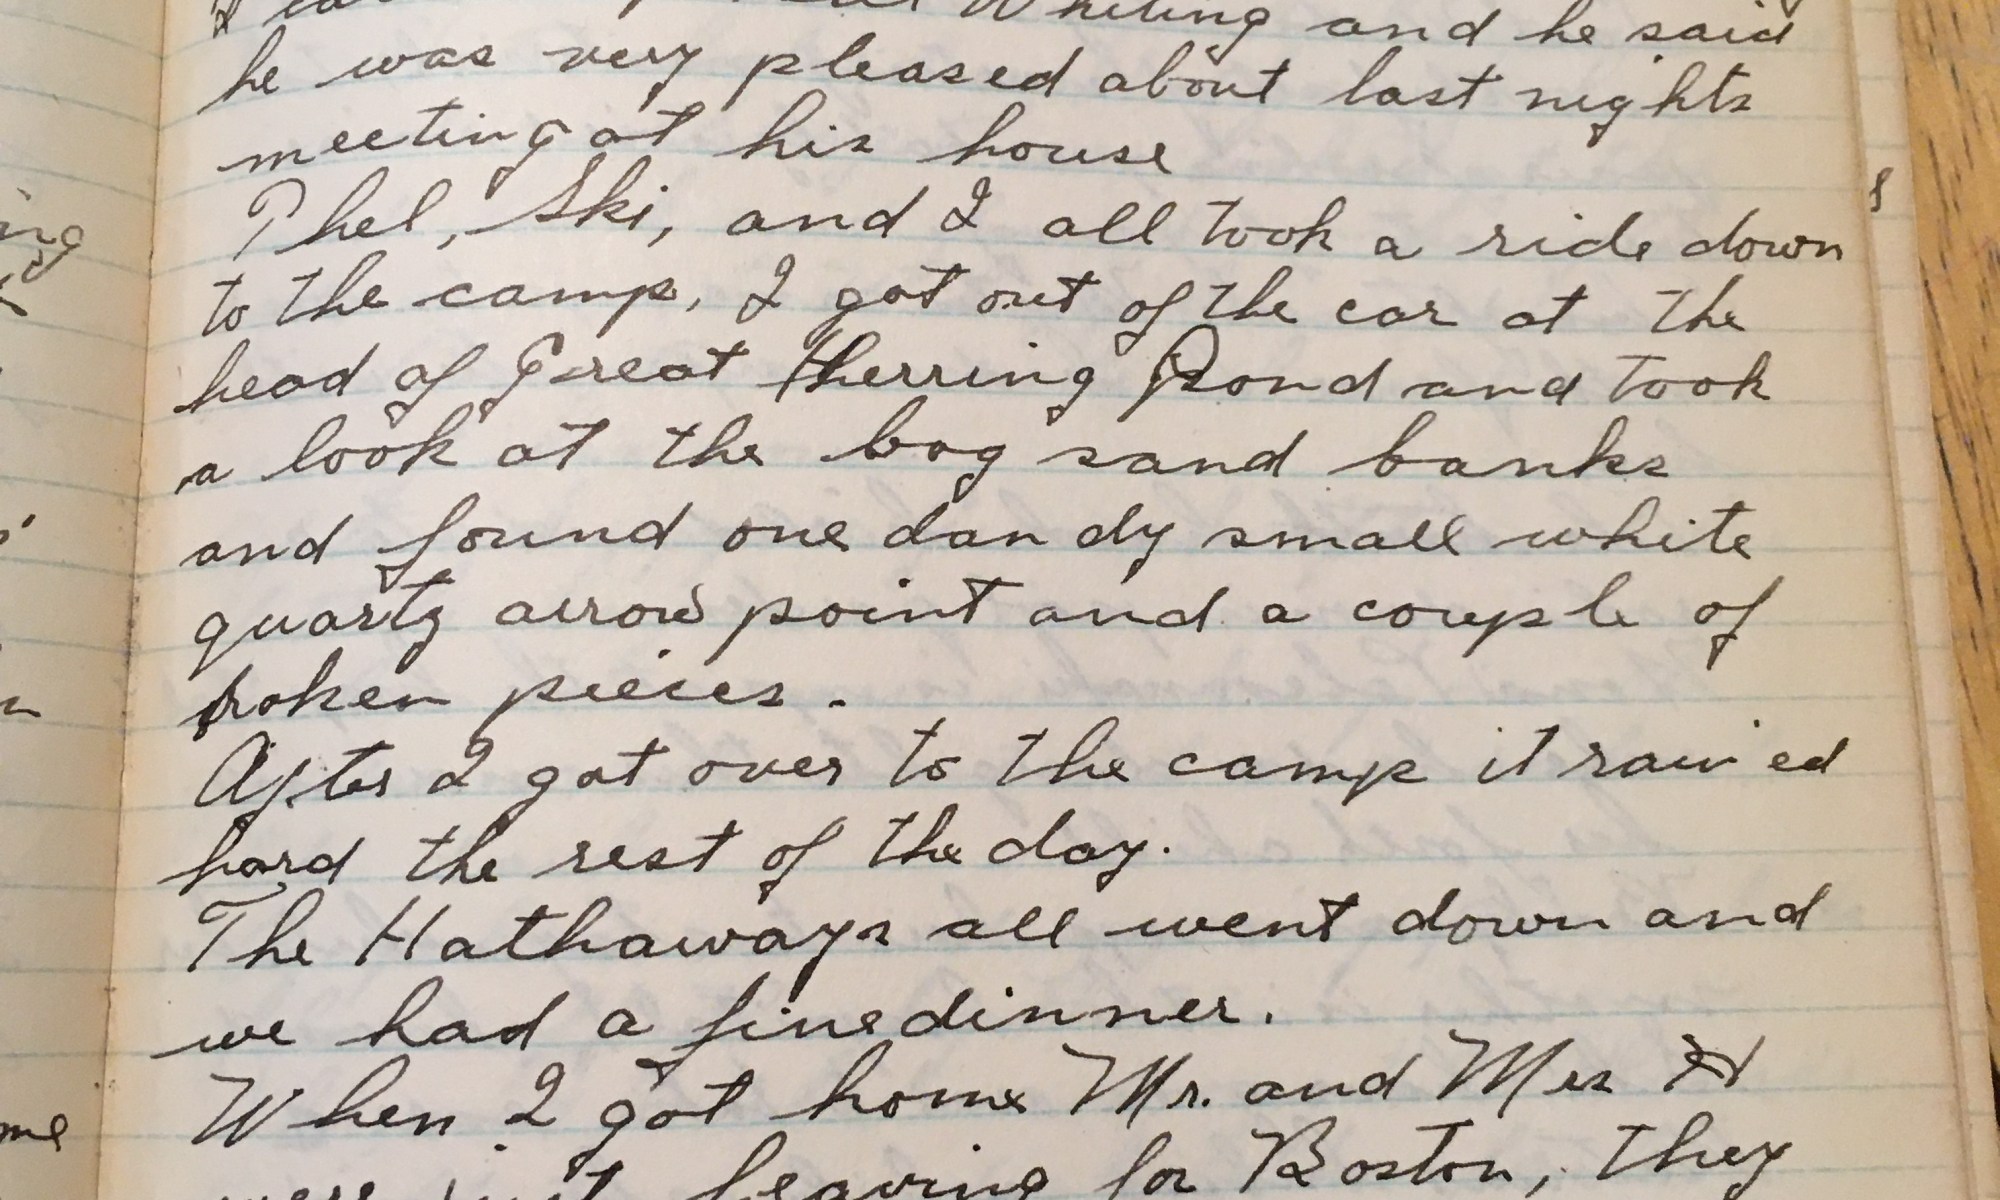 Whiting and he said
he was very pleased about last nights
meeting at his house
Phel, Ski, and I all took a ride down
to the camp, I got out of the car at the
head of Great Herring Pond and took
a look at the bog sand banks
and found one dandy small white
quartz arrow point and a couple of
broken pieces.
After I got over to the camp it rained
hard the rest of the day.
The Hathaways all went down and
we had a fine dinner.
When I got home Mr. and Mrs H
were just leaving for Boston, they
ing
me